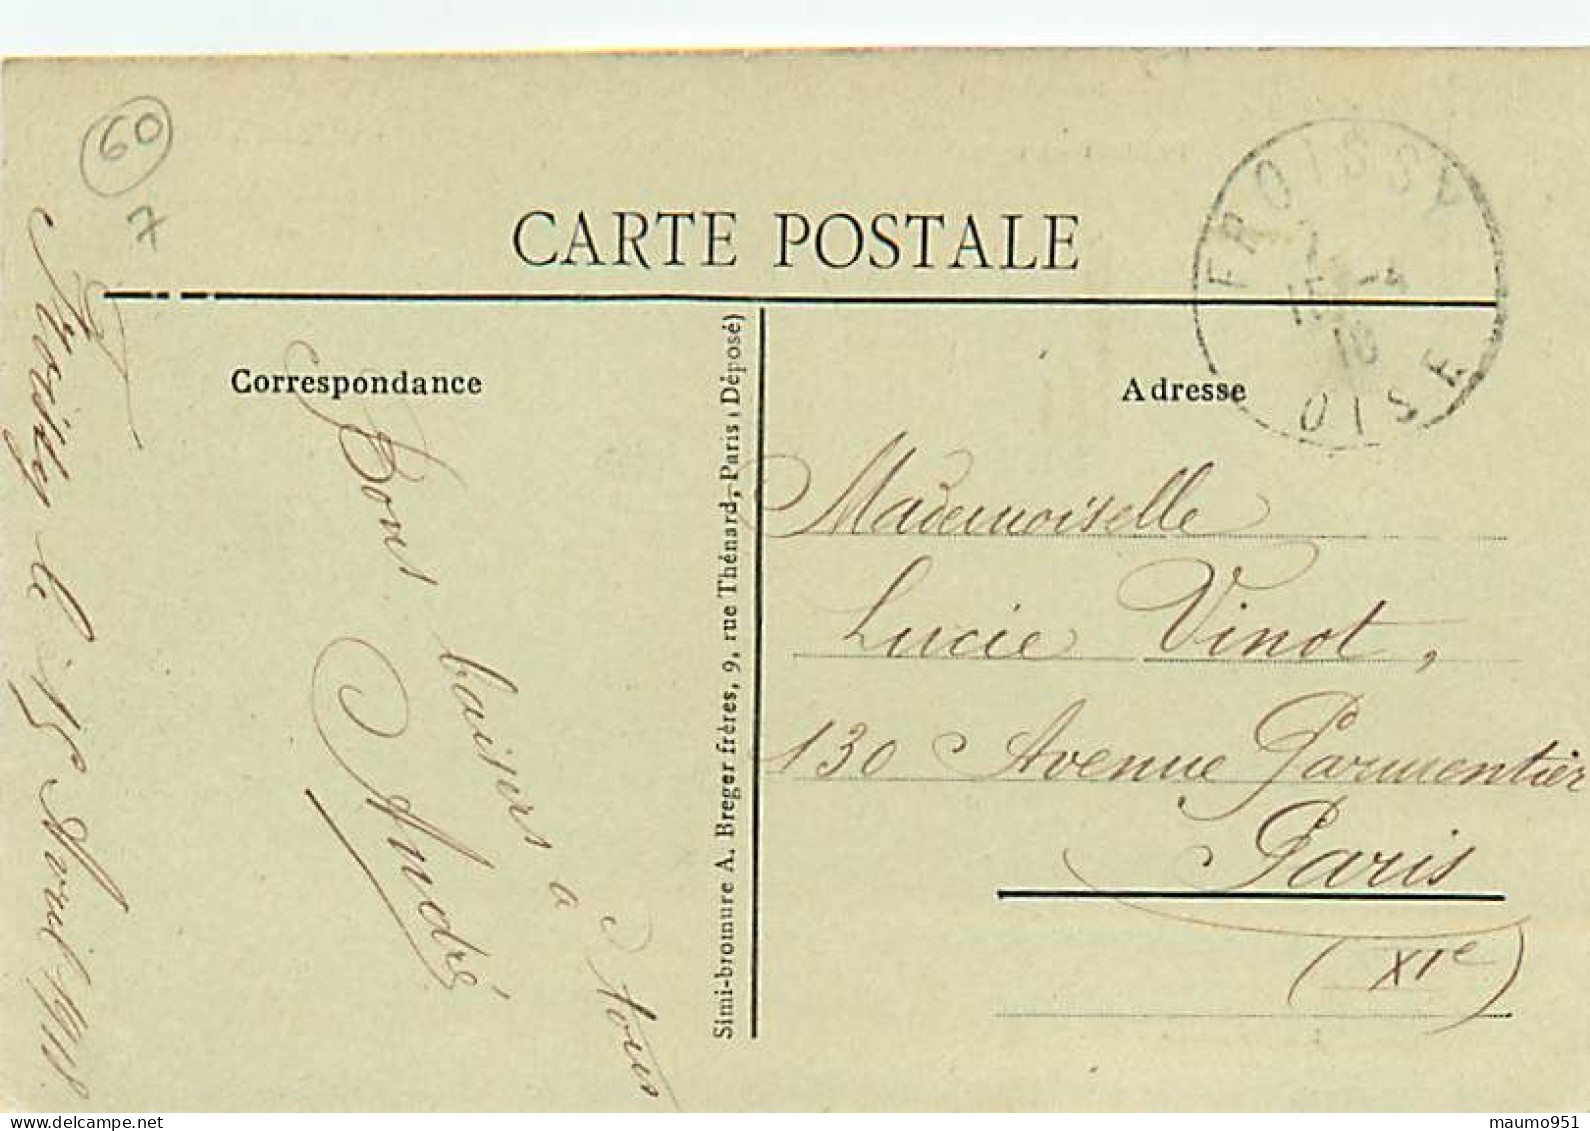 60
7
CARTE POSTALE
FROISSY
15 -4
10
OISE
Correspondance
Adresse
le 15 Avril
Bons baisers à tous
André
Simi-bromure A. Breger frères, 9, rue Thénard, Paris (Déposé)
Mademoiselle
Lucie Vinot,
130 Avenue Parmentier
Paris
(XIe)
maumo951